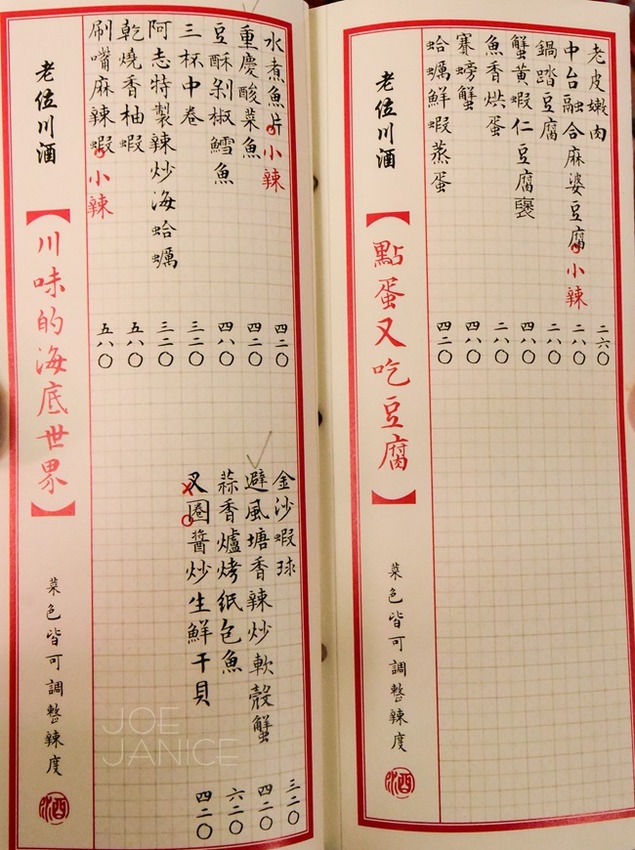 老皮嫩肉 二六〇
中台融合麻婆豆腐 小辣 二八〇
鍋踏豆腐 二八〇
蟹黃蝦仁豆腐褒 四八〇
魚香烘蛋 二八〇
賽螃蟹 四八〇
蛤蠣鮮蝦蒸蛋 四二〇
老位川酒
【點蛋又吃豆腐】
菜色皆可調整辣度
水煮魚片 小辣 四二〇
重慶酸菜魚 四二〇
豆酥剁椒鱈魚 四八〇
三杯中卷 三二〇
阿志特製辣炒海蛤蠣 三二〇
乾燒香柚蝦 五八〇
刷嘴麻辣蝦 小辣 五八〇
金沙蝦球 三二〇
避風塘香辣炒軟殼蟹 四二〇
蒜香爐烤紙包魚 六二〇
叉圈醬炒生鮮干貝 四二〇
X O
老位川酒
【川味的海底世界】
菜色皆可調整辣度
JOE
JANICE